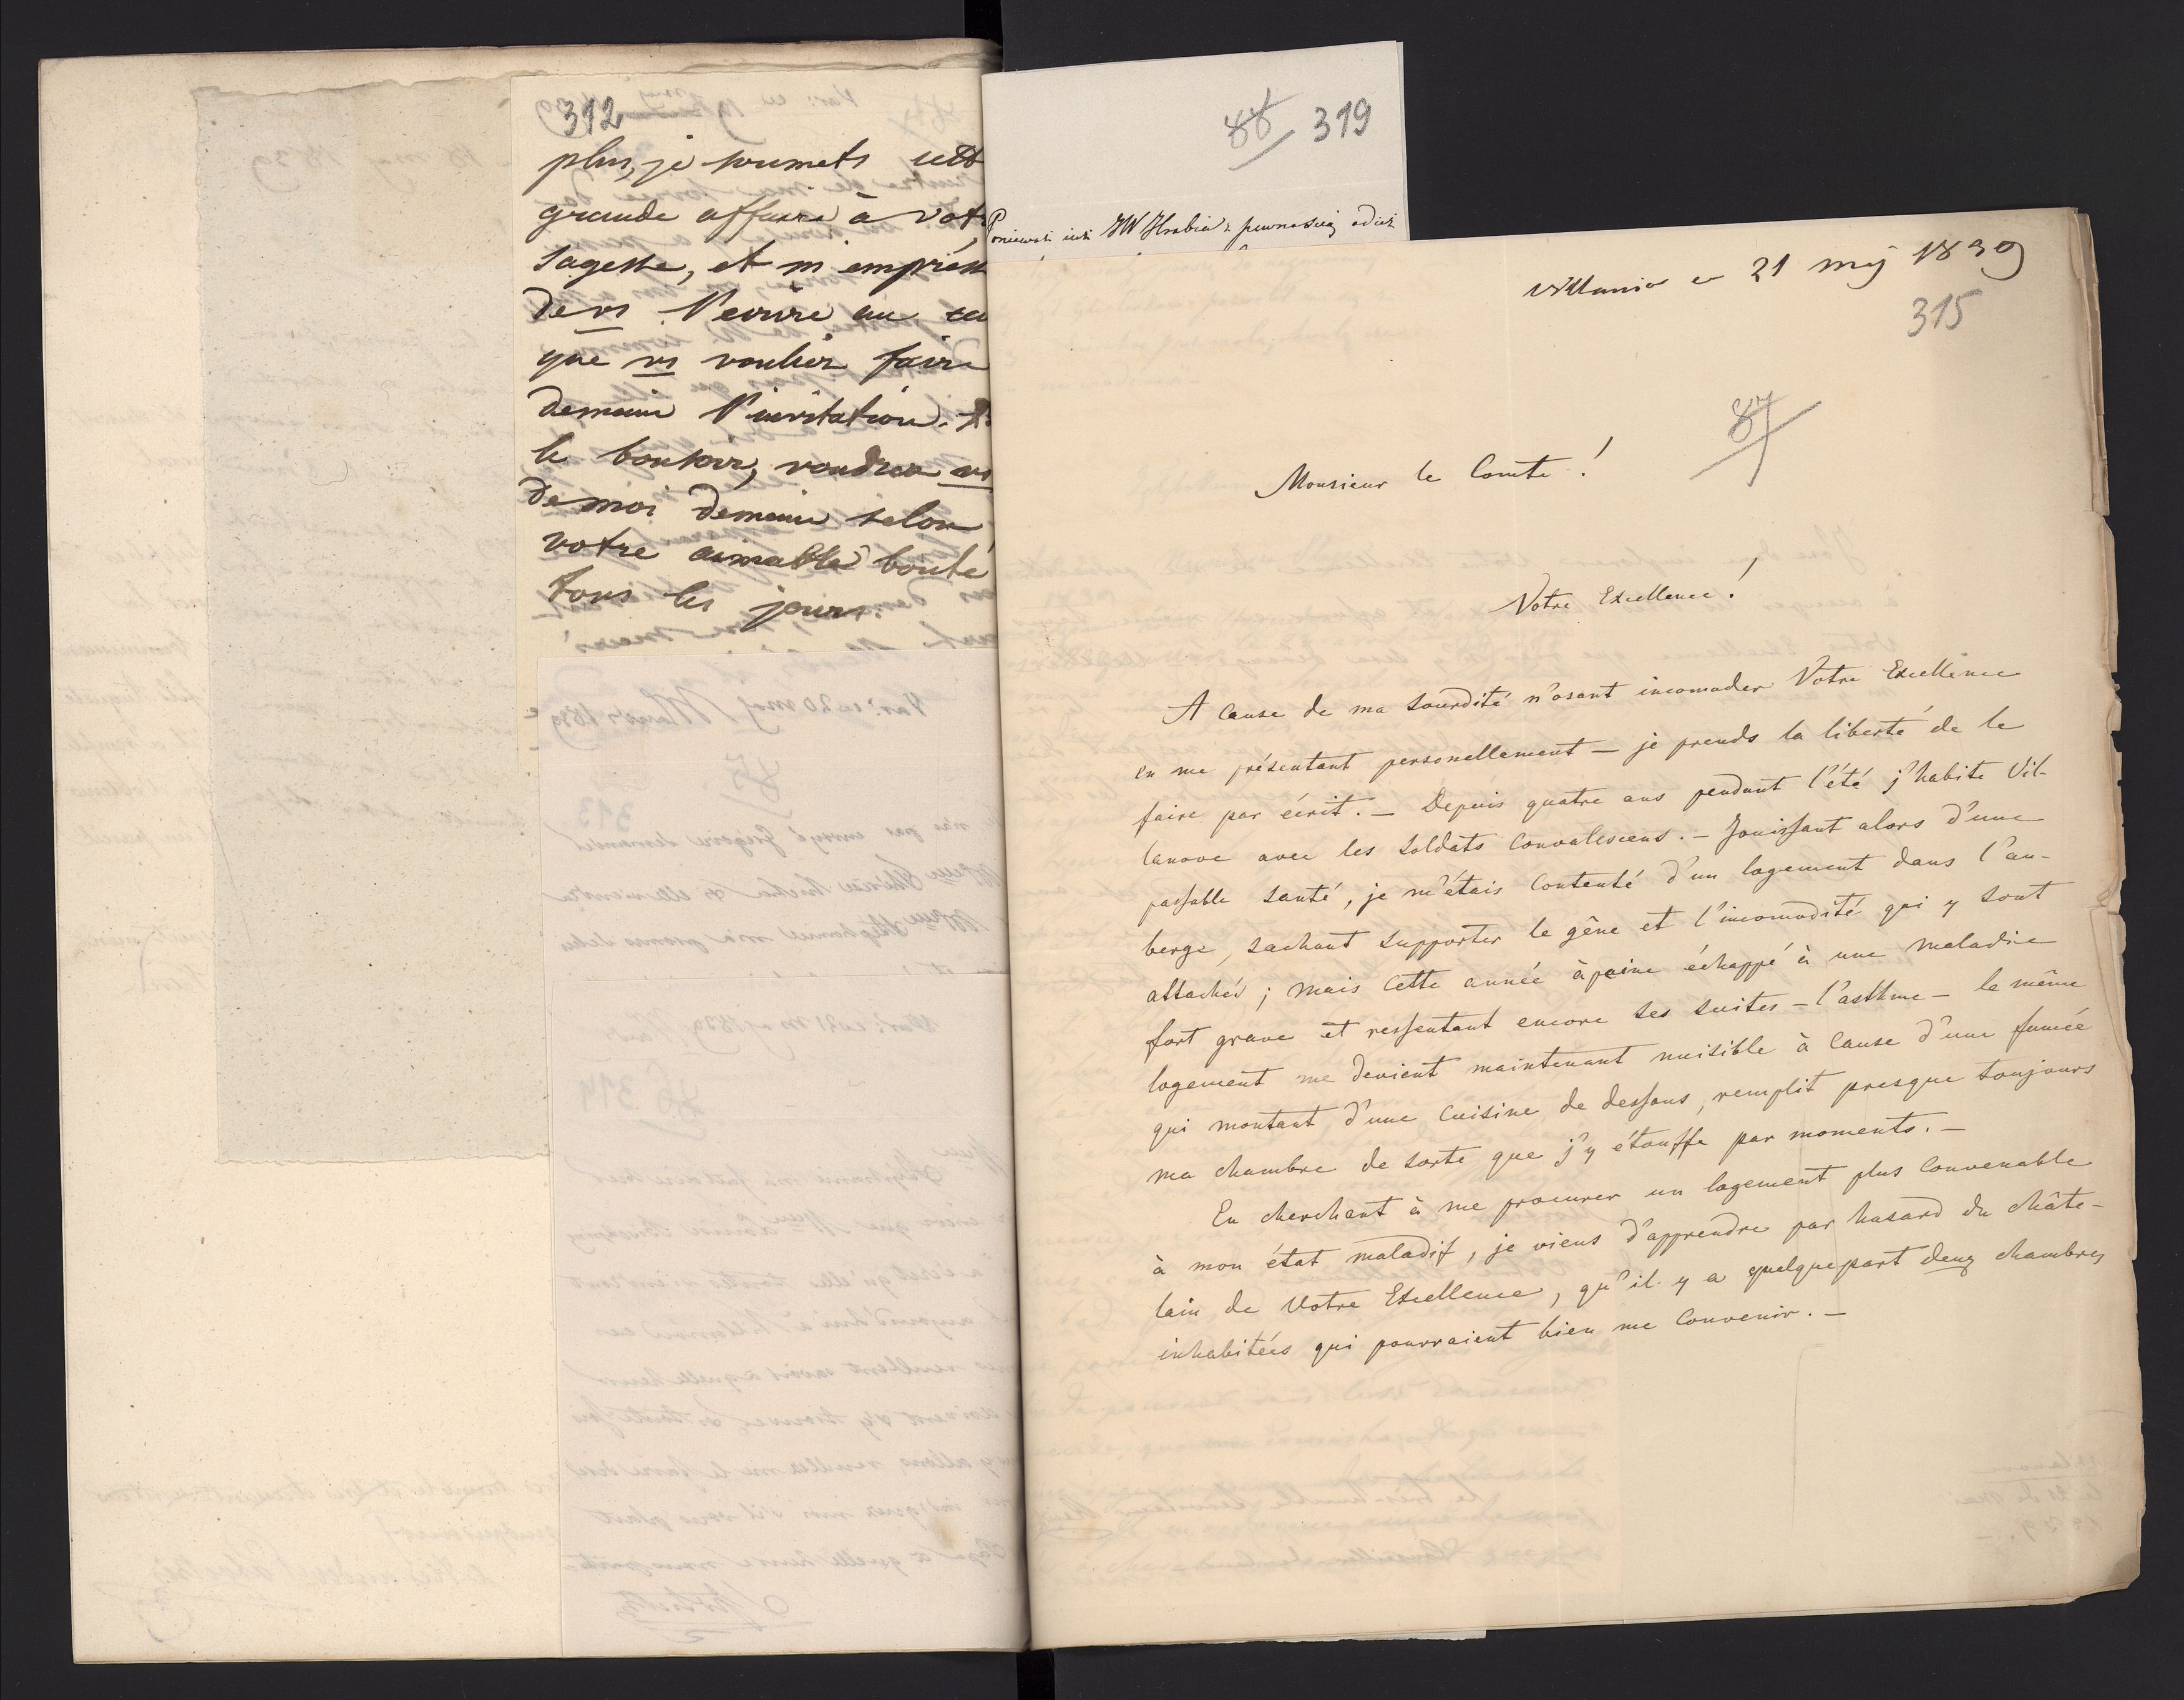 312
plus, je soumets cett
grande affaire à votr
sagesse, et m'empresse
de vs l'ecrire au cas
que vs vouliez faire
demain l'invitation.
le bonsoir, voudrez vs
de moi demain selon
votre aimable bonté
tous les jours.
88 319
JW Hrabia z pewnością
21 maj 1839
315
87
Monsieur le Comte !
Votre Excellence !
A cause de ma sourdité n'osant incomoder Votre Excellence
en me présentant personellement — je prends la liberté de le
faire par écrit. — Depuis quatre ans pendant l'été j'habite Vil-
lanove avec les soldats convalescens. — Jouissant alors d'une
passable santé, je m'étais contenté d'un logement dans l'au-
berge, sachant supporter le gêne et l'incomodité qui y sont
attachés ; mais cette année àpeine échappé à une maladie
fort grave et ressentant encore ses suites — l'asthme — le même
logement me devient maintenant nuisible à cause d'une fumée
qui montant d'une cuisine de dessous, remplit presque toujours
ma chambre de sorte que j'y étouffe par moments. —
En cherchant à me procurer un logement plus convenable
à mon état maladif, je viens d'apprendre par hasard du châte-
lain de Votre Excellence, qu'il y a quelquepart deux chambres
inhabitées qui pourraient bien me convenir. —